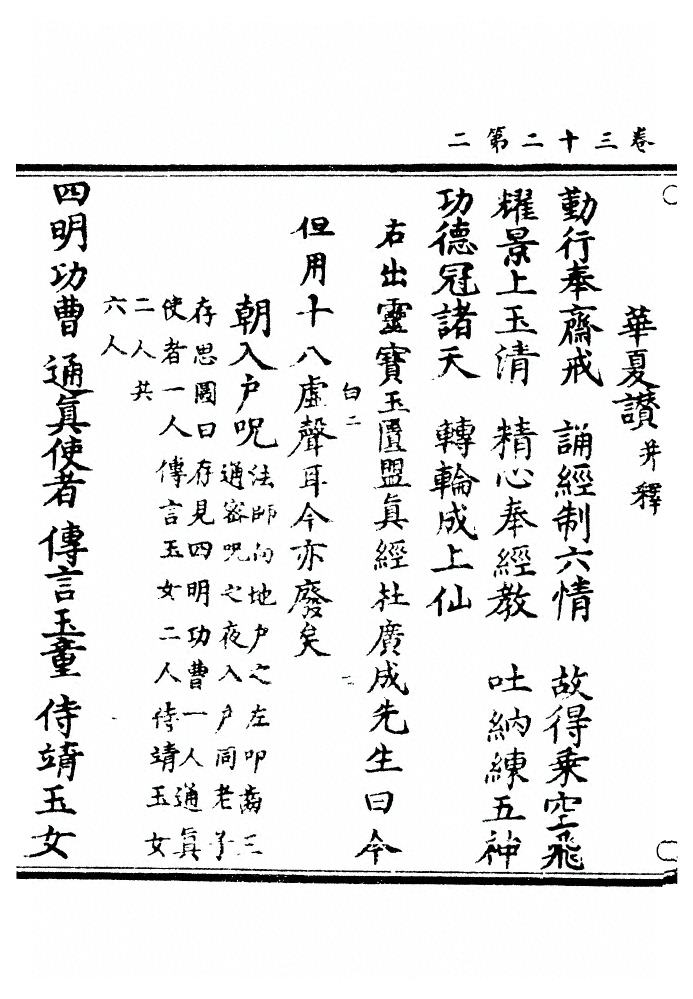 卷三十二第二
華夏讃 并釋
勤行奉齋戒 誦經制六情 故得乗空飛
耀景上玉清 精心奉經教 吐納練五神
功德冠諸天 轉輪成上仙
右出靈寶玉匱盟眞經杜廣成先生曰今
白二
但用十八虛聲耳今亦廢矣
朝入户呪 法師向地户之左叩齒三
通密呪之夜入户同老子
存思圖曰存見四明功曹一人通眞
使者一人傳言玉女二人侍靖玉女
二人共
六人
四明功曹 通眞使者 傳言玉童 侍靖玉女